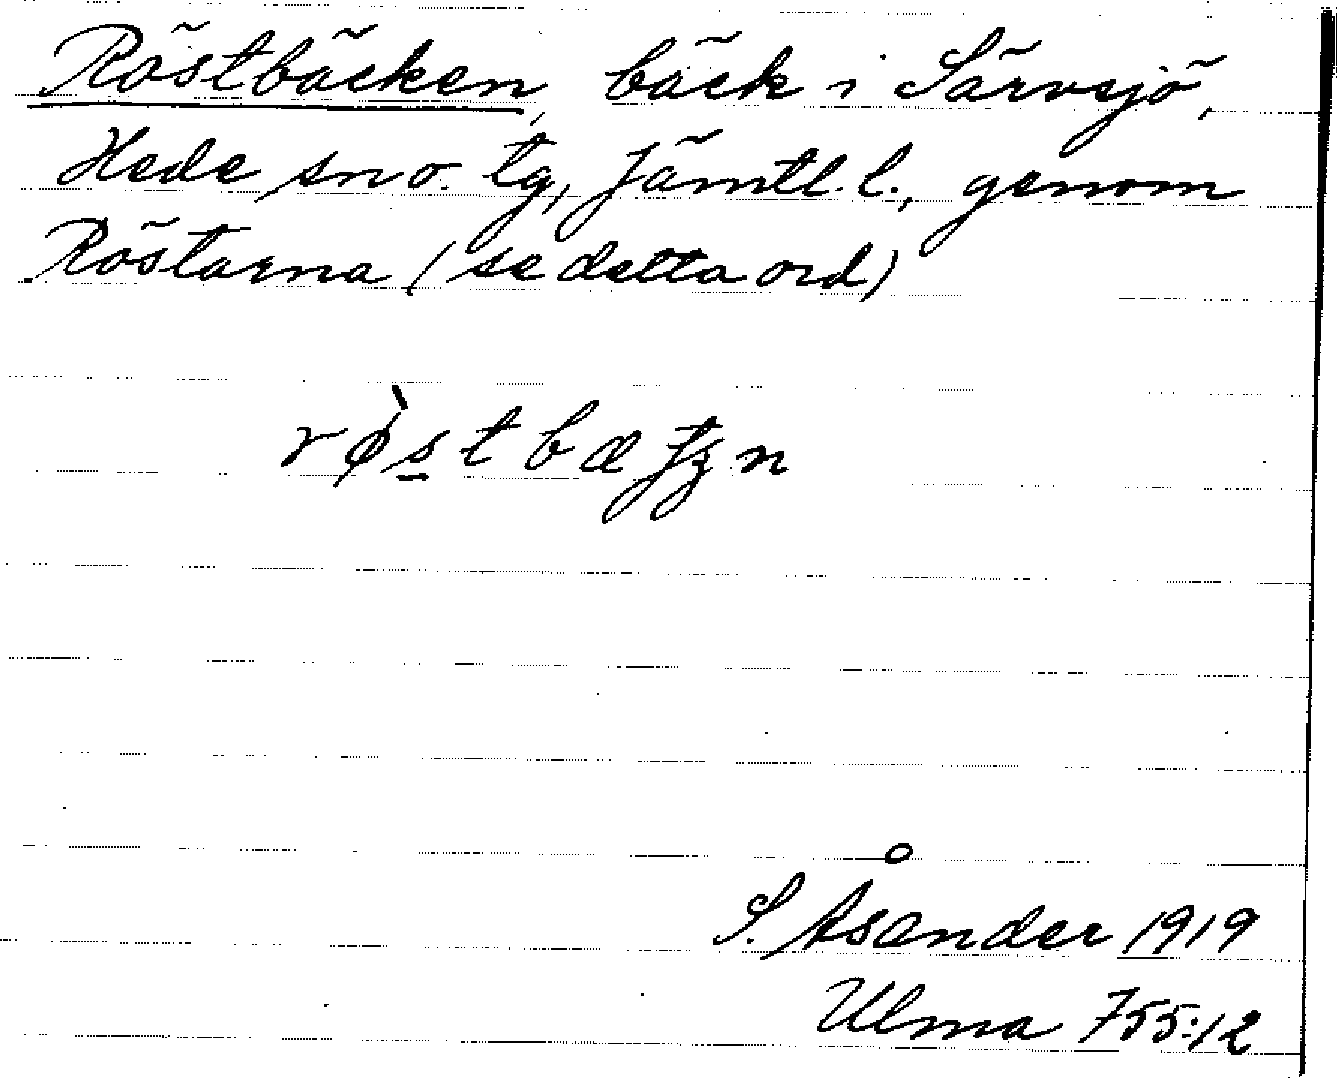 Röstbäcken, bäck i Särvsjö,
Hede sn o. tg, Jämtl. l., genom
Röstarna (se detta ord)
S. Åsander 1919
Ulma 755:12